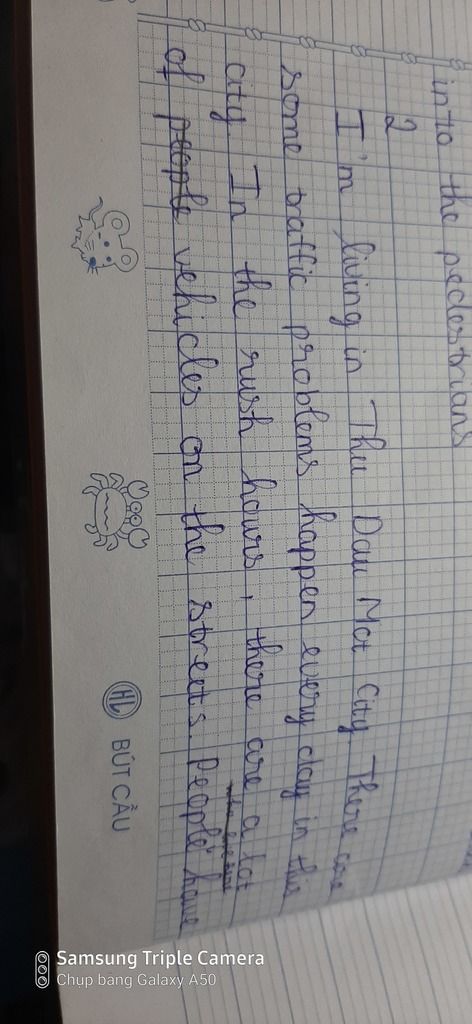 into the pedestrians
2
I'm living in Thu Dau Mot City. There are
some traffic problems happen every day in this
city. In the rush hours, there are a lot
of people vehicles on the streets. People have
HL BÚT CẦU
Samsung Triple Camera
Chụp bằng Galaxy A50